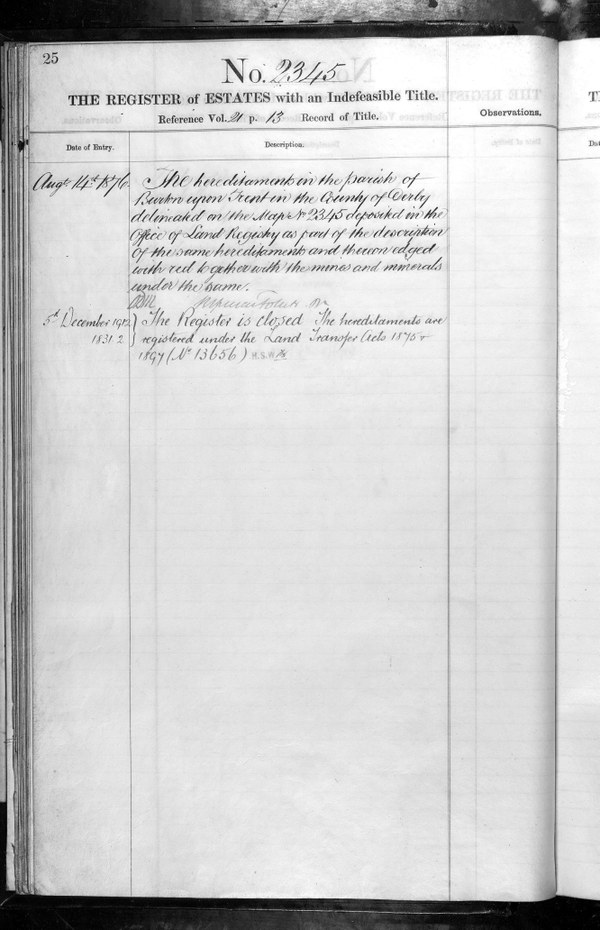 25
No. 2345
THE REGISTER of ESTATES with an Indefeasible Title.
Reference Vol. 21 p. 13 Record of Title.
Observations,
Date of Entry.
Description.
Augt 14th 1876.
The hereditaments in the parish of
Burton upon Trent in the County of Derby
delineated on the Map No 2345 deposited in the
Office of Land Registry as part of the description
of the same hereditaments and thereon edged
with red together with the mines and minerals
under the same.
5th December
1831.2
The Register is closed The hereditaments are
registered under the Land Transfer Acts 1875 &
1897 (No 13656) H.S.W